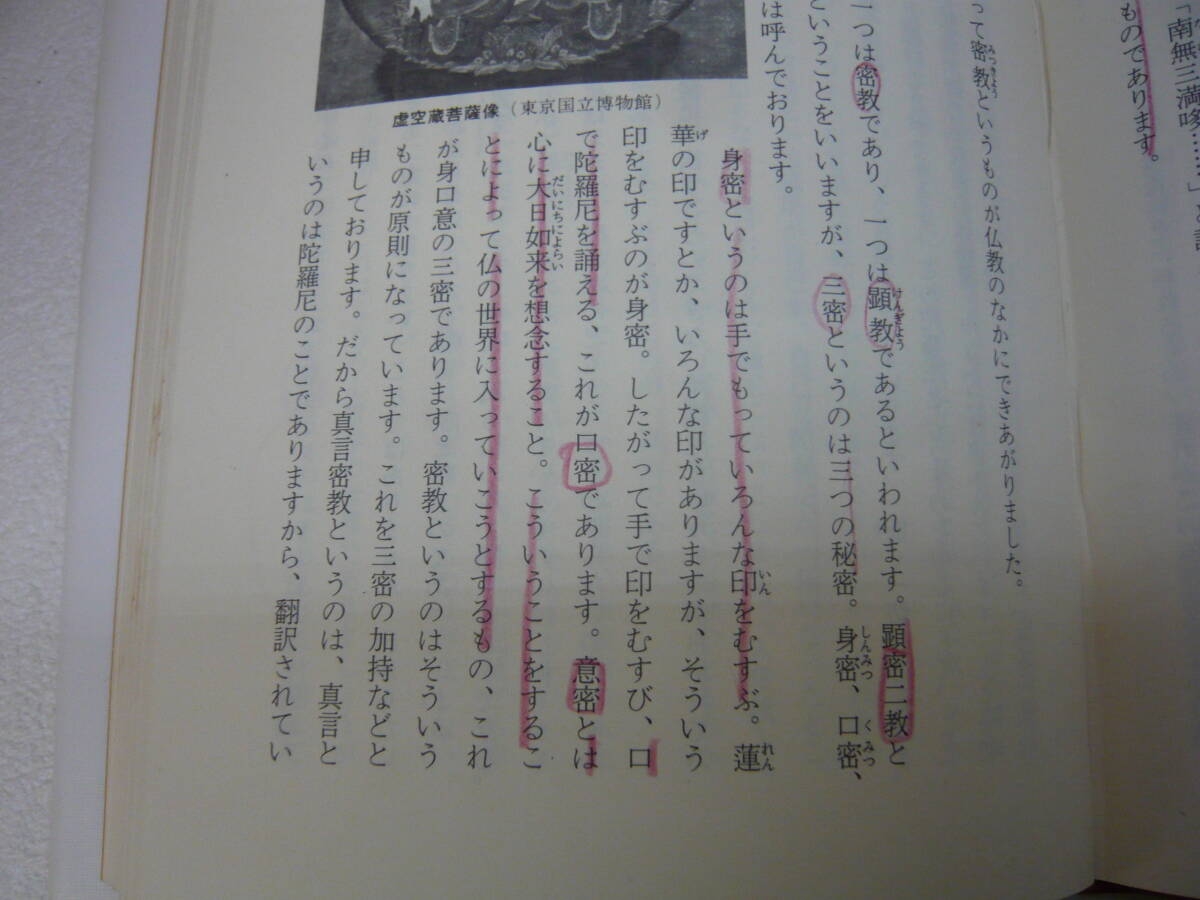 「南無三満哆……」
ものであります。
って密教というものが仏教のなかにできあがりました。
一つは密教であり、一つは顕教であるといわれます。顕密二教と
ということをいいますが、三密というのは三つの秘密。身密、口密、
は呼んでおります。
身密というのは手でもっていろんな印をむすぶ。蓮
華の印ですとか、いろんな印がありますが、そういう
印をむすぶのが身密。したがって手で印をむすび、口
で陀羅尼を誦える、これが口密であります。意密とは
心に大日如来を想念すること。こういうことをするこ
とによって仏の世界に入っていこうとするもの、これ
が身口意の三密であります。密教というのはそういう
ものが原則になっています。これを三密の加持などと
申しております。だから真言密教というのは、真言と
いうのは陀羅尼のことでありますから、翻訳されてい
虚空蔵菩薩像（東京国立博物館）